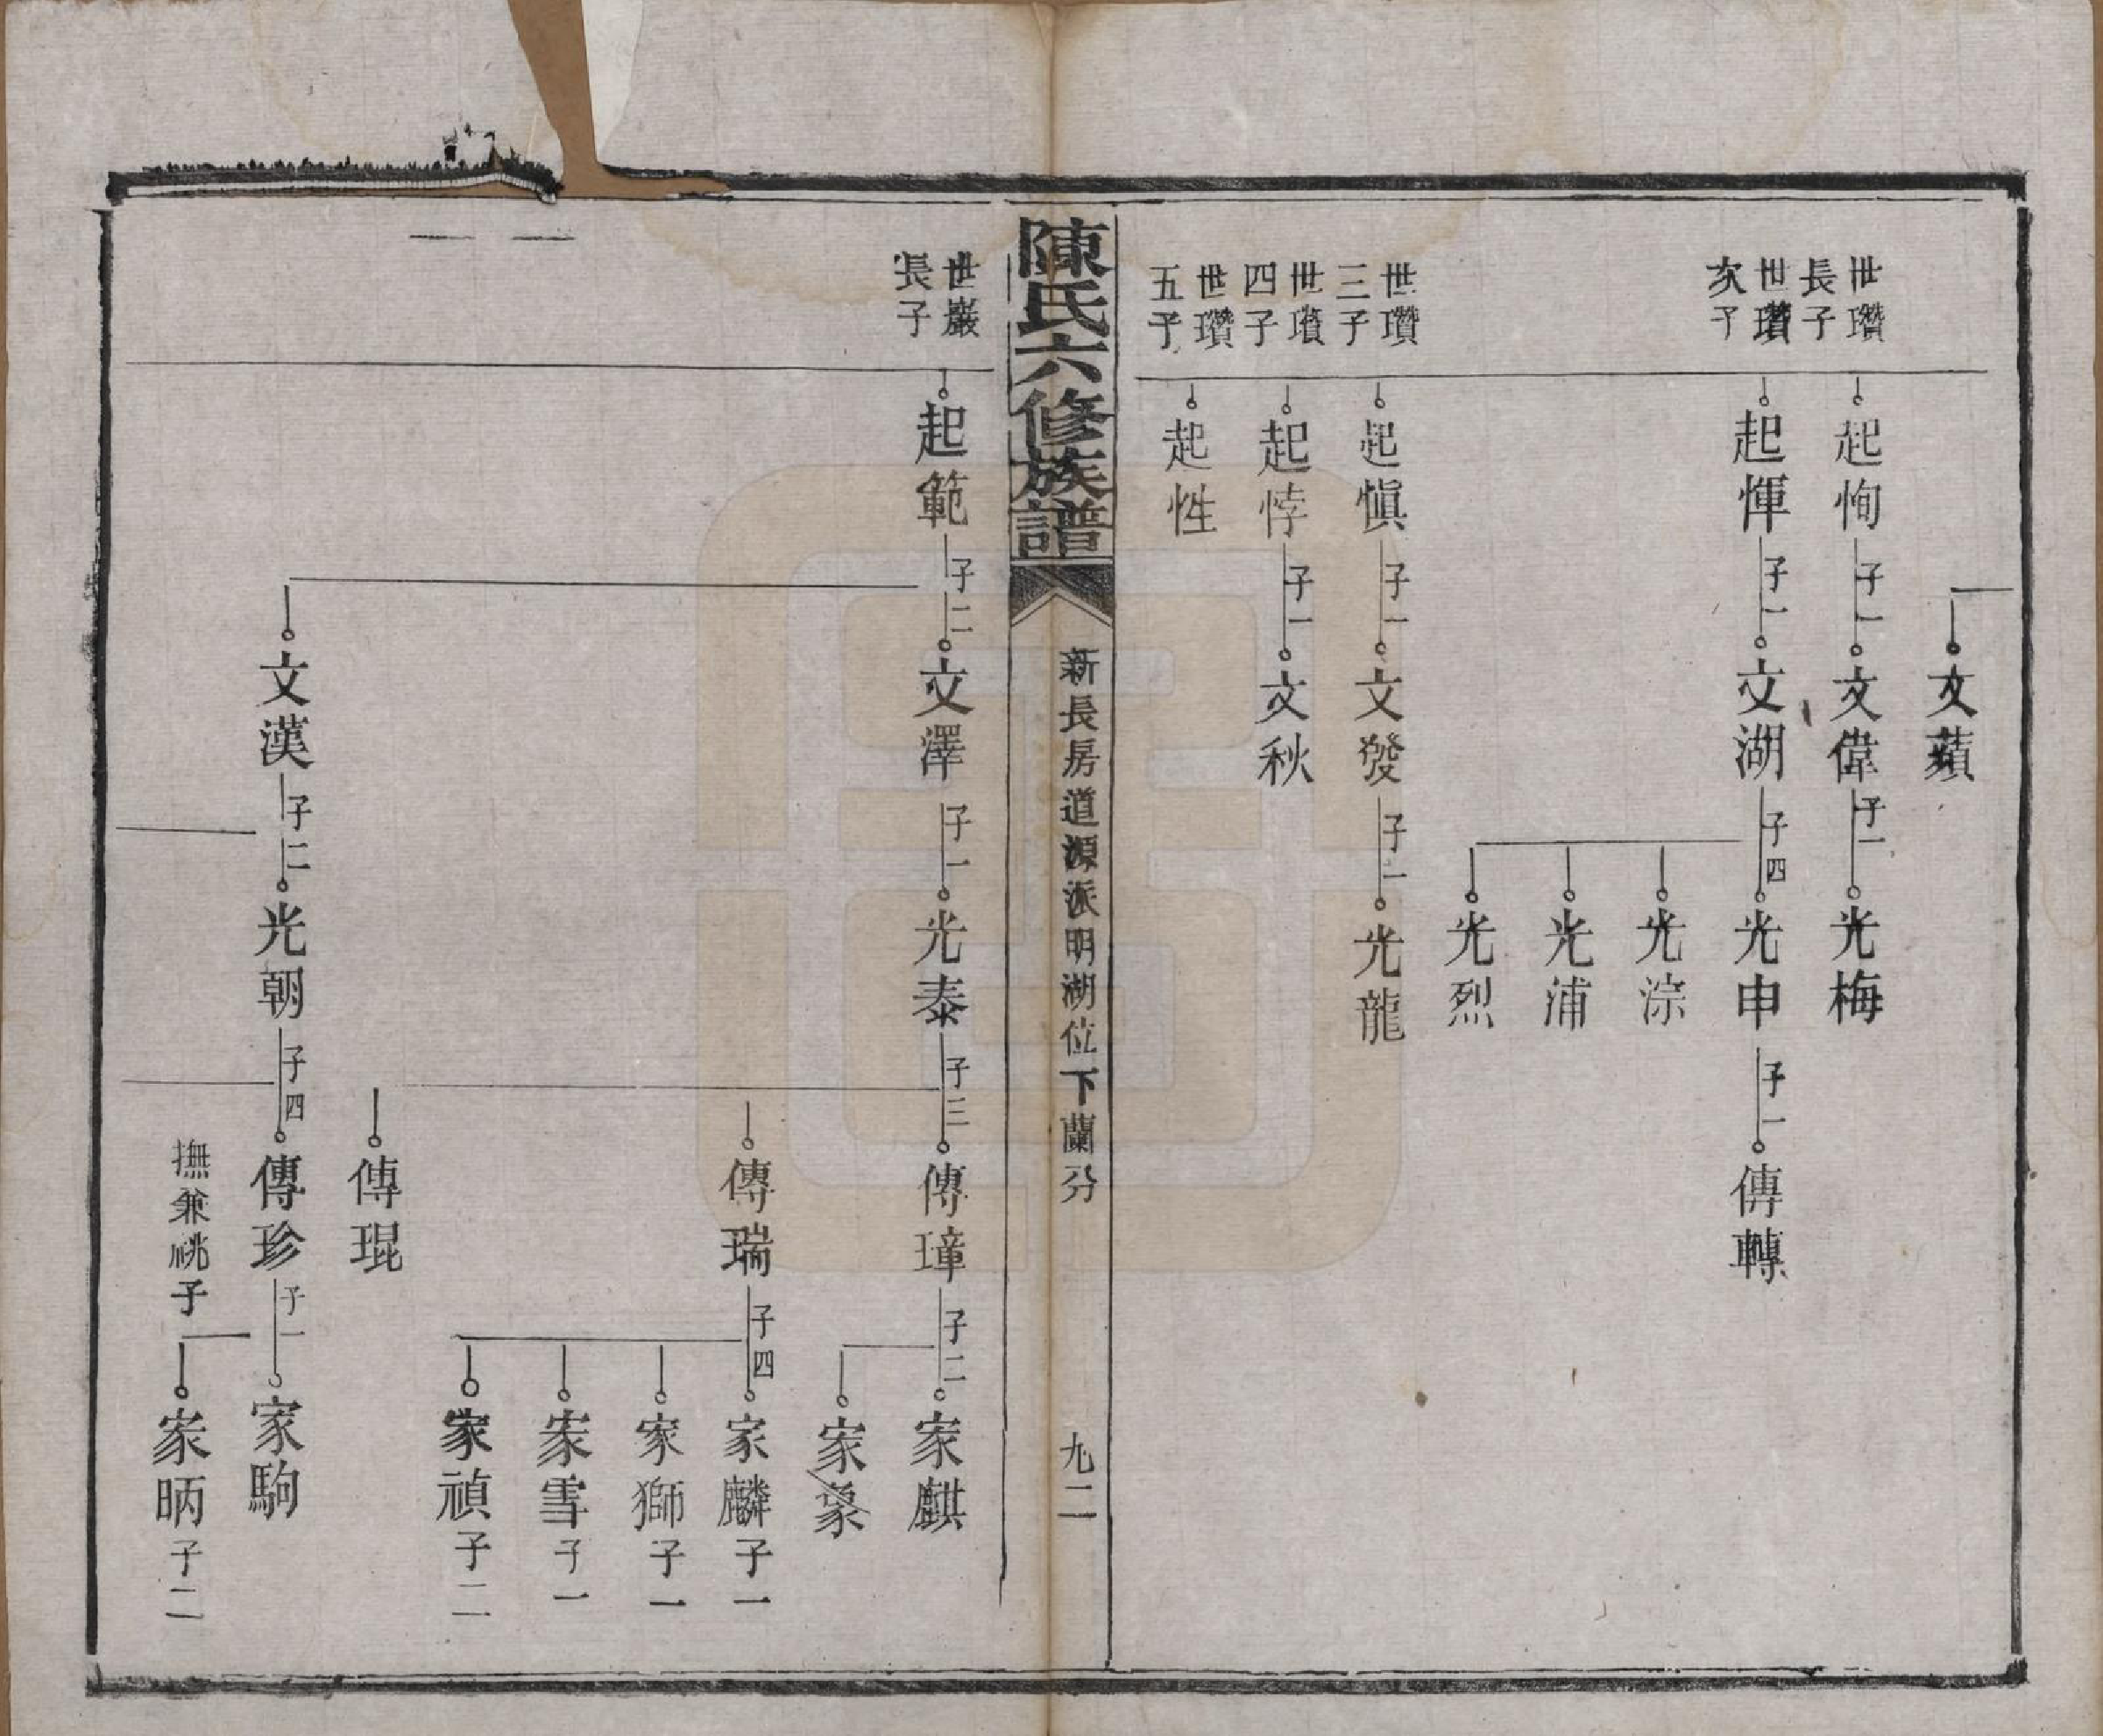 文蘋
世瓚
長子
起恂
子一
文偉
子一
光梅
世瓚
次子
起惲
子一
文湖
子四
光申
子一
傳轉
光淙
光浦
光烈
世瓚
三子
起愼
子一
文發
子一
光龍
世瓚
四子
起悖
子一
文秋
世瓚
五子
起性
陳氏六修族譜
新長房道源派明湖位下蘭分
九二
世巖
長子
起範
子二
文澤
子一
光泰
子三
傳璋
子二
家麒
家象
傳瑞
子四
家麟子一
家獅子一
家雪子一
家禎子二
傳琨
文漢
子二
光朝
子四
傳珍
子一
家駒
撫兼祧子
家昞子二